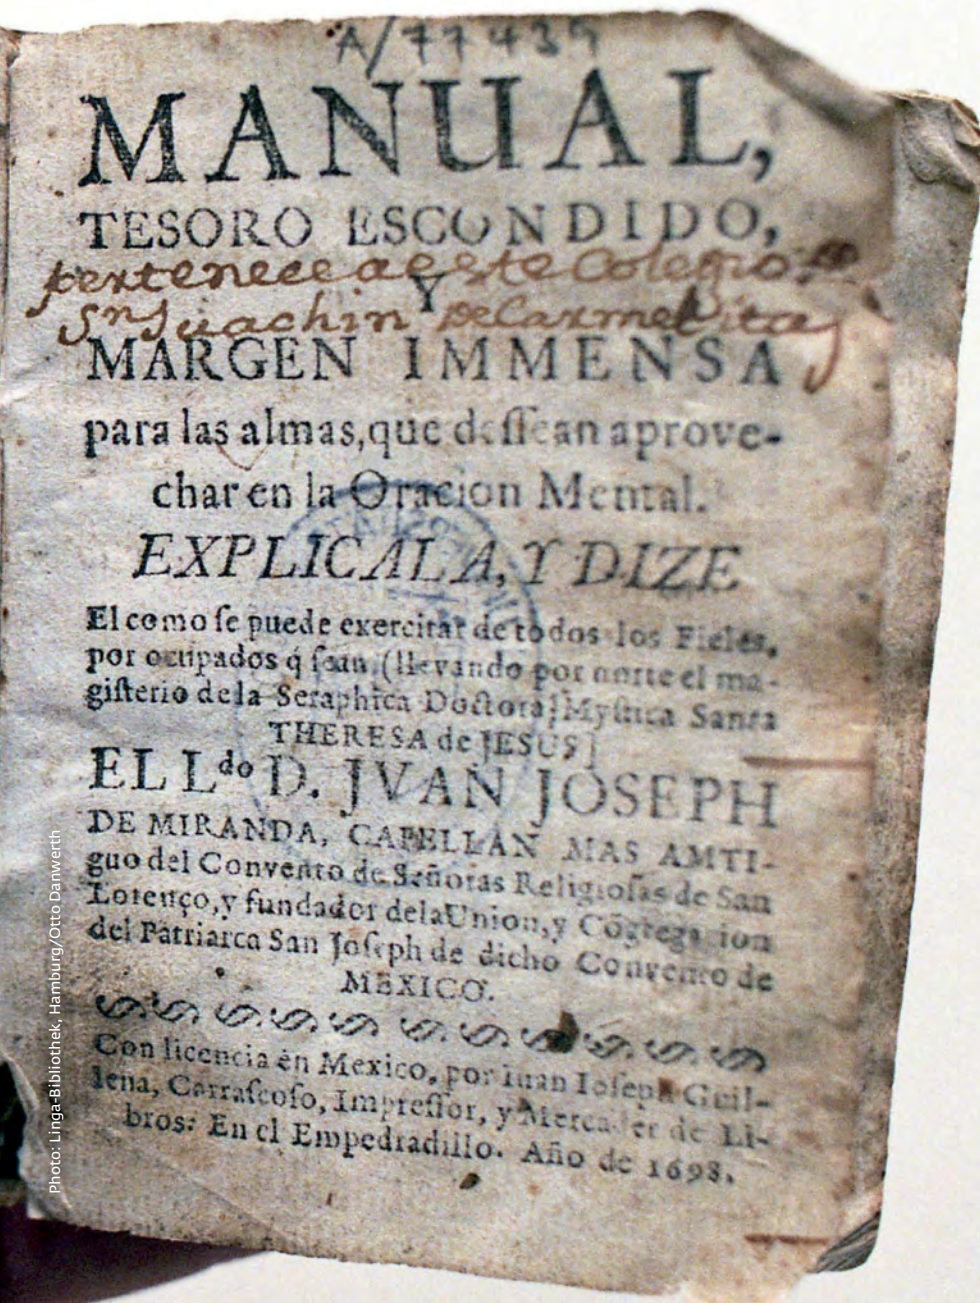 A/77439
MANUAL,
TESORO ESCONDIDO,
pertenece a este Colegio de
Y
Sn Juachin De Carmelitas
MARGEN IMMENSA
para las almas, que desſean aprove-
char en la Oracion Mental.
EXPLICALA, Y DIZE
El como ſe puede exercitar de todos los Fieles,
por ocupados q̃ ſean. (llevando por norte el ma-
giſterio de la Seraphica Doctora, Myſtica Santa
THERESA de JESUS)
EL Ldo D. JVAN JOSEPH
DE MIRANDA, CAPELLAN MAS AMTI-
guo del Convento de Señoras Religioſas de San
Lorenço, y fundador de la Union, y Cõgregacion
del Patriarca San Joſeph de dicho Convento de
MEXICO.
Con licencia en Mexico, por Iuan Ioſeph Guil-
lena, Carraſcoſo, Impreſſor, y Mercader de Li-
bros: En el Empedradillo. Año de 1698.
Photo: Linga-Bibliothek, Hamburg/Otto Danwerth